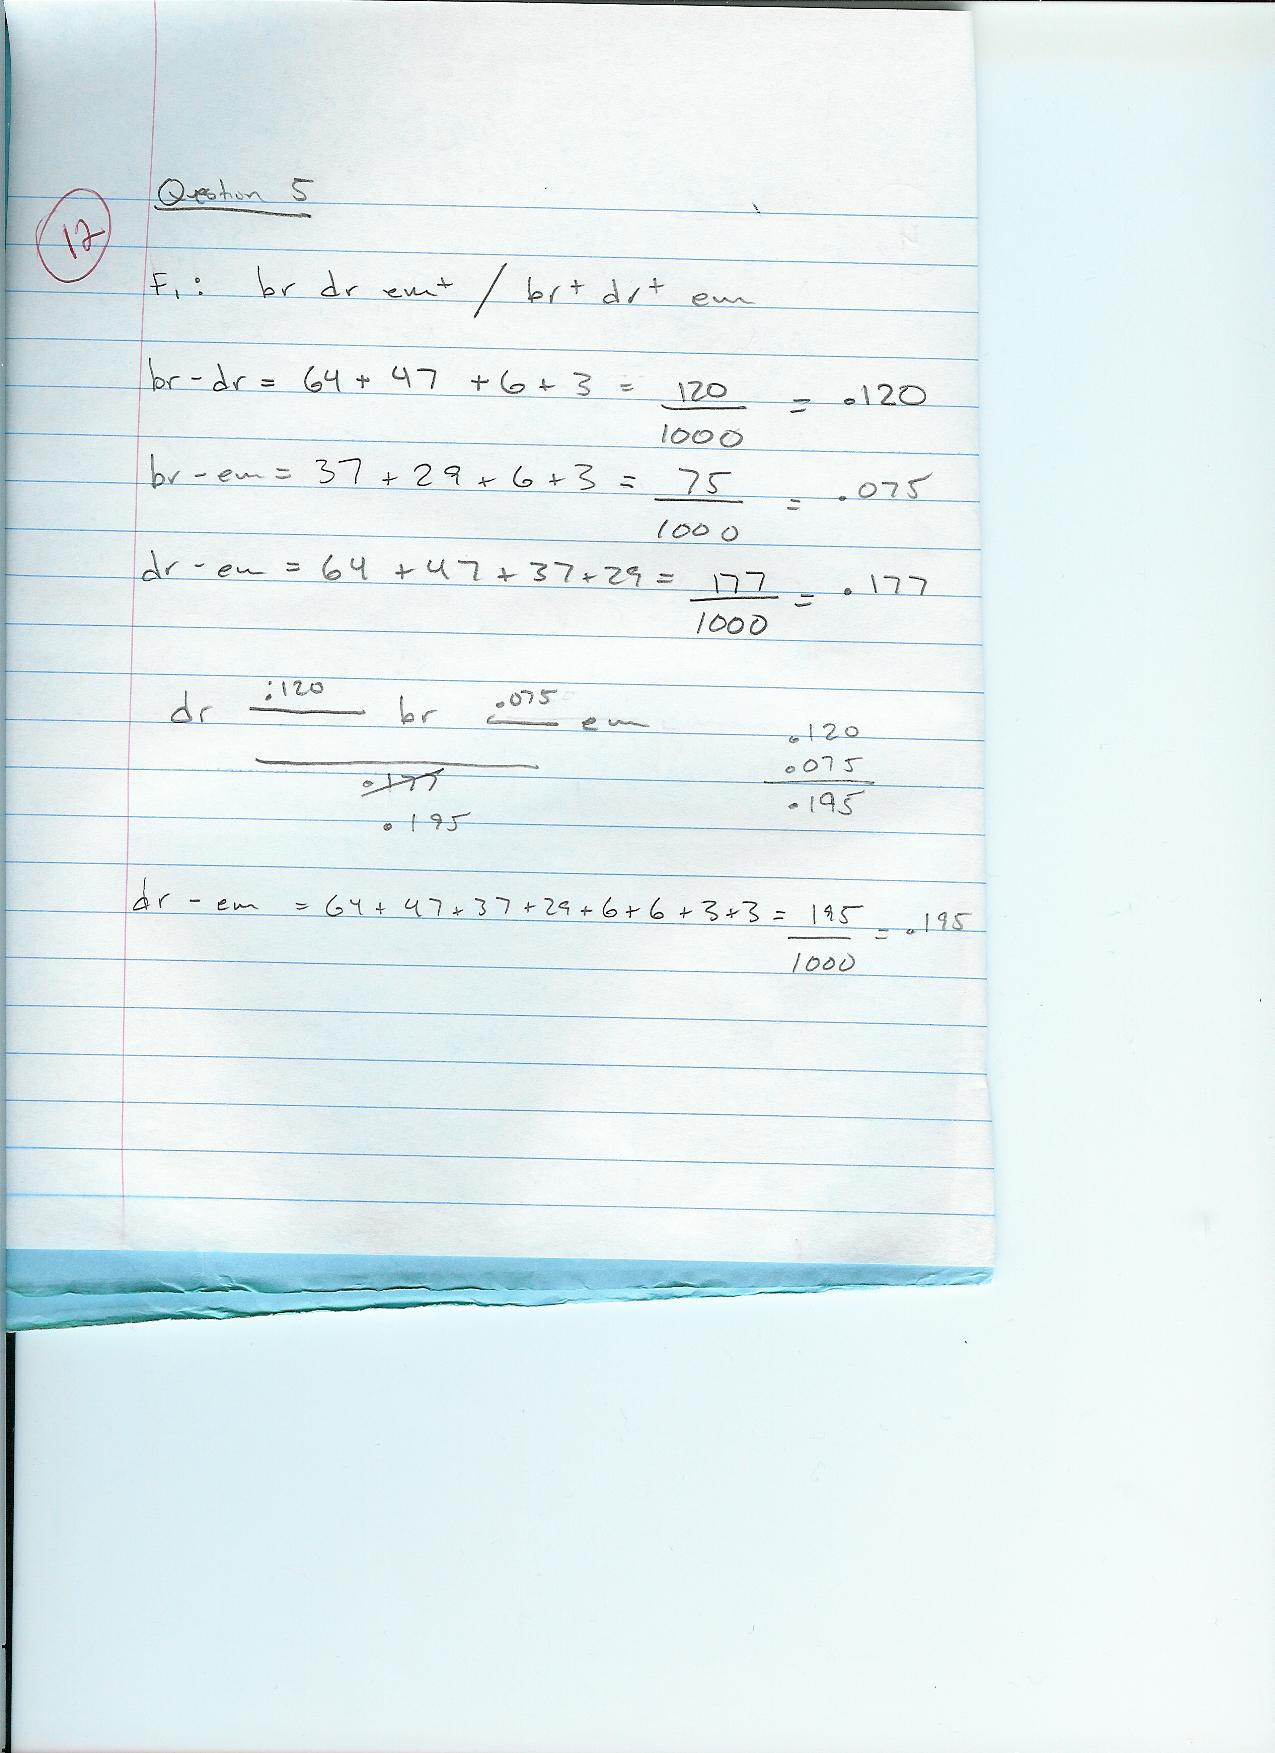 Question 5
12
F1: br dr em+ / br+ dr+ em
br - dr = 64 + 47 + 6 + 3 = 120/1000 = .120
br - em = 37 + 29 + 6 + 3 = 75/1000 = .075
dr - em = 64 + 47 + 37 + 29 = 177/1000 = .177
dr .120 br .075 em
.177
.195
.120
.075
.195
dr - em = 64 + 47 + 37 + 29 + 6 + 6 + 3 + 3 = 195/1000 = .195